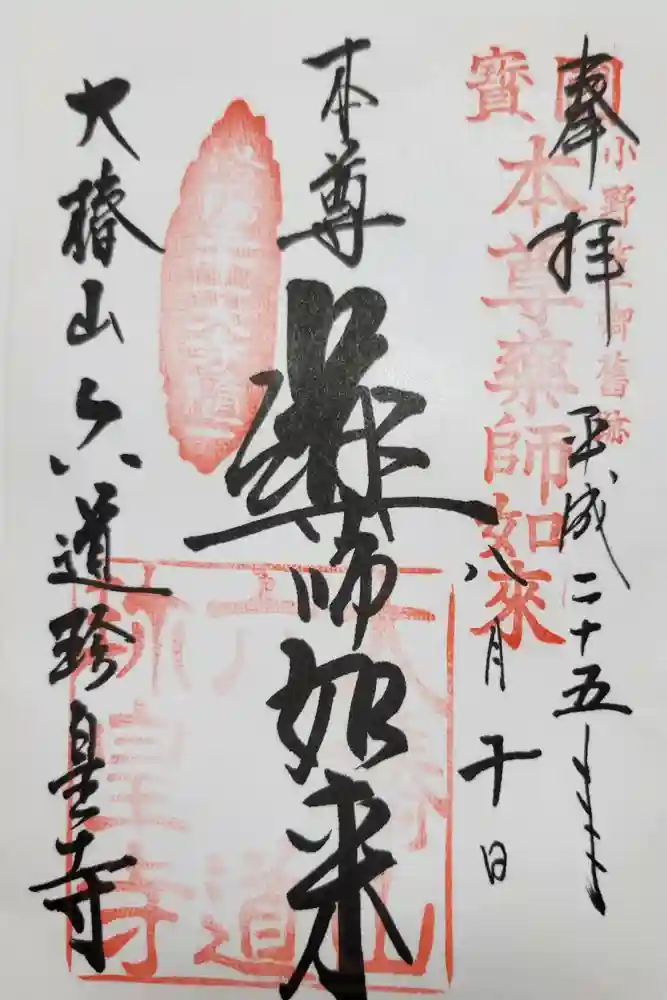 奉拝
平成二十五年
八月十日
本尊
薬師如来
大椿山六道珍皇寺
小野篁卿舊跡
國寳
本尊薬師如來
大椿山
六道
珍皇寺